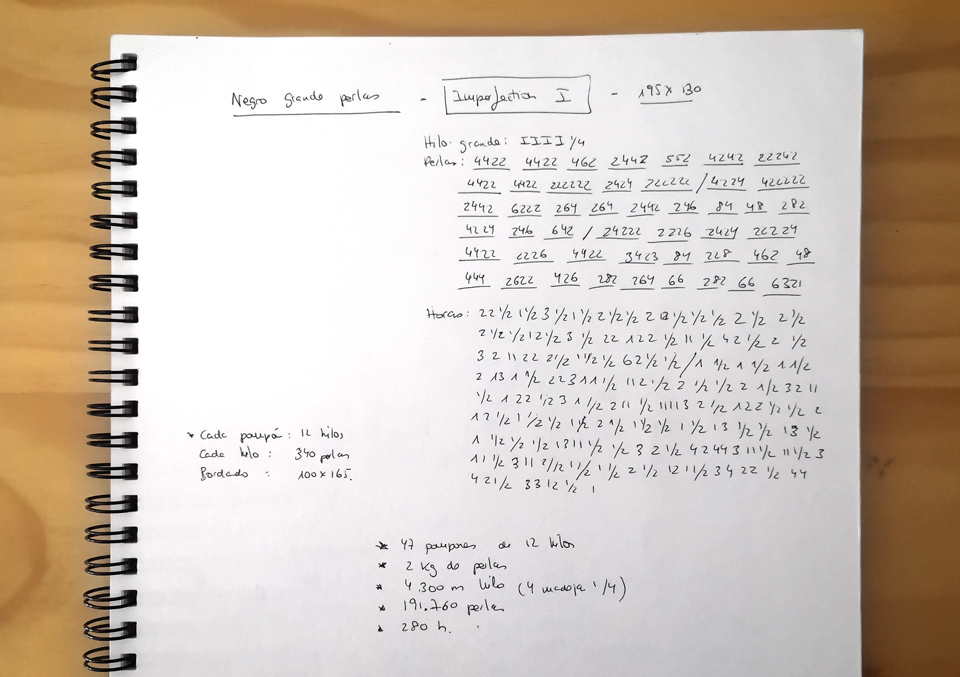 Negro grande perlas - Imperfection I - 195 x 130
Hilo grande: IIII 1/4
Perlas: 4422 4422 462 2442 552 4242 22242
4422 4422 222222 2424 222222 / 4224 422222
2442 6222 264 264 2442 246 84 48 282
4224 246 642 / 24222 2226 2424 22224
4422 2226 4422 3423 84 228 462 48
444 2622 426 282 264 66 282 66 6321
Horas: 22 1/2 1 1/2 3 1/2 1 1/2 2 1/2 1/2 2 1/2 1/2 2 1/2 2 1/2
2 1/2 1/2 12 1/2 3 1/2 22 122 1/2 11 1/2 42 1/2 2 1/2
3 2 11 22 2 1/2 1 1/2 1/2 62 1/2 1/2 / 1 1/2 1 1/2 1 1/2
2 13 1 1/2 223 11 1/2 112 1/2 2 1/2 1/2 2 1/2 32 11
1/2 122 1/2 3 1 1/2 2 11 1/2 11113 2 1/2 122 1/2 1/2 2
12 1/2 1 1/2 1/2 1/2 2 1/2 1 1/2 1/2 1 1/2 13 1/2 1/2 13 1/2
1 1/2 1/2 1/2 1311 1/2 1/2 3 2 1/2 42443 11 1/2 11 1/2 3
11 1/2 311 2 1/2 1 1/2 1 1/2 2 1/2 1211 1/2 34 22 1/2 44
4 21 1/2 3312 1/2 1
* Cada pompón: 12 hilos
Cada hilo: 340 perlas
Bordado: 100 x 165.
* 47 pompones de 12 hilos
* 2 Kg de perlas
* 4.300 m hilo (4 madeja 1/4)
* 191.760 perlas
* 280 h.